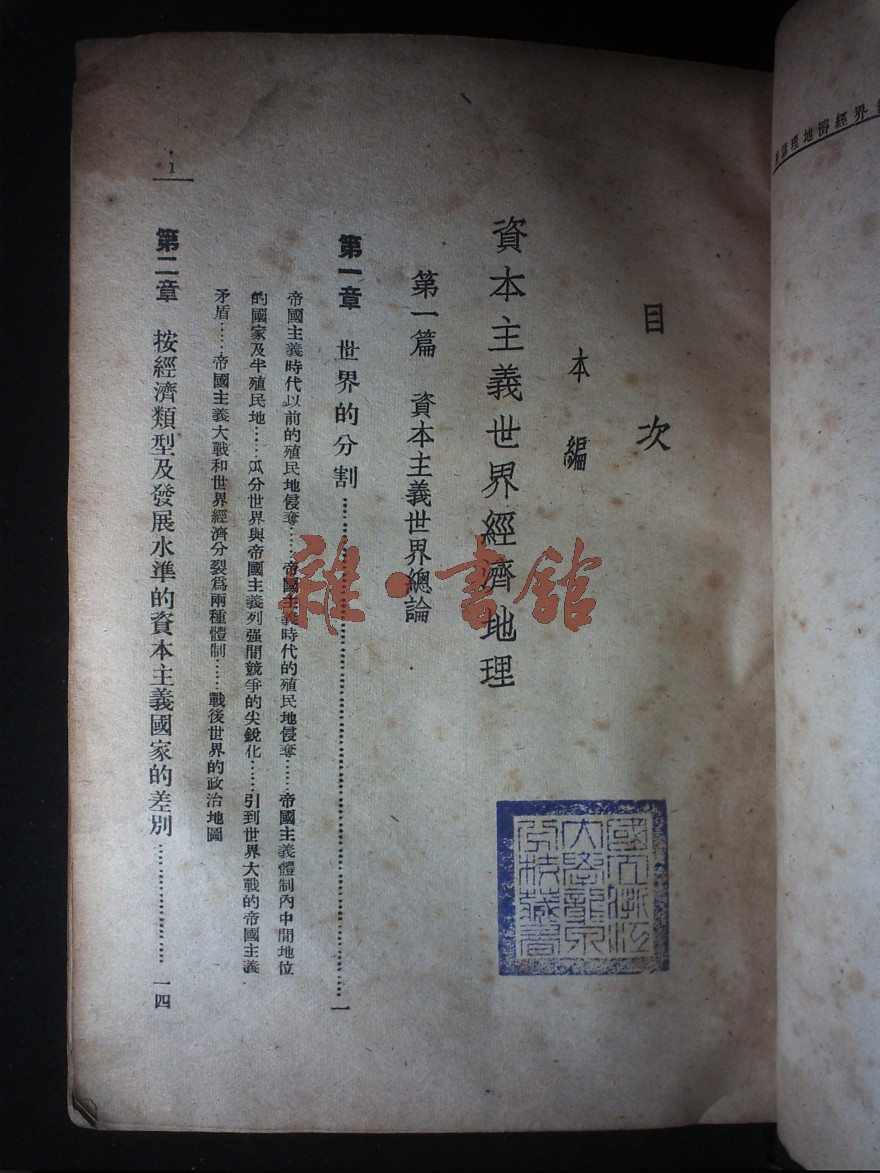 目次
本編
資本主義世界經濟地理
第一篇　資本主義世界總論
第一章　世界的分割……一
帝國主義時代以前的殖民地侵奪……帝國主義時代的殖民地侵奪……帝國主義體制內中間地位
的國家及半殖民地……瓜分世界與帝國主義列强間競爭的尖銳化……引到世界大戰的帝國主義
矛盾……帝國主義大戰和世界經濟分裂爲兩種體制……戰後世界的政治地圖
第二章　按經濟類型及發展水準的資本主義國家的差別……一四
1
國立浙江
大學龍泉
分校藏書
雜·書館
界經濟地理